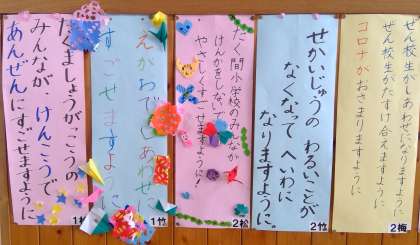 ぜん校生がしあわせになりますように
ぜん校生がたすけ合えますように
コロナがおさまりますように
2梅
せかいじゅうの わるいことが
なくなって へいわに
なりますように。
2竹
たく間小学校のみんなが
けんかをしないで
やさしくすごせますように!
2松
えがおで しあわせに
すごせますように
1竹
たくましょうがっこうの
みんなが、けんこうで
あんぜんにすごせますように